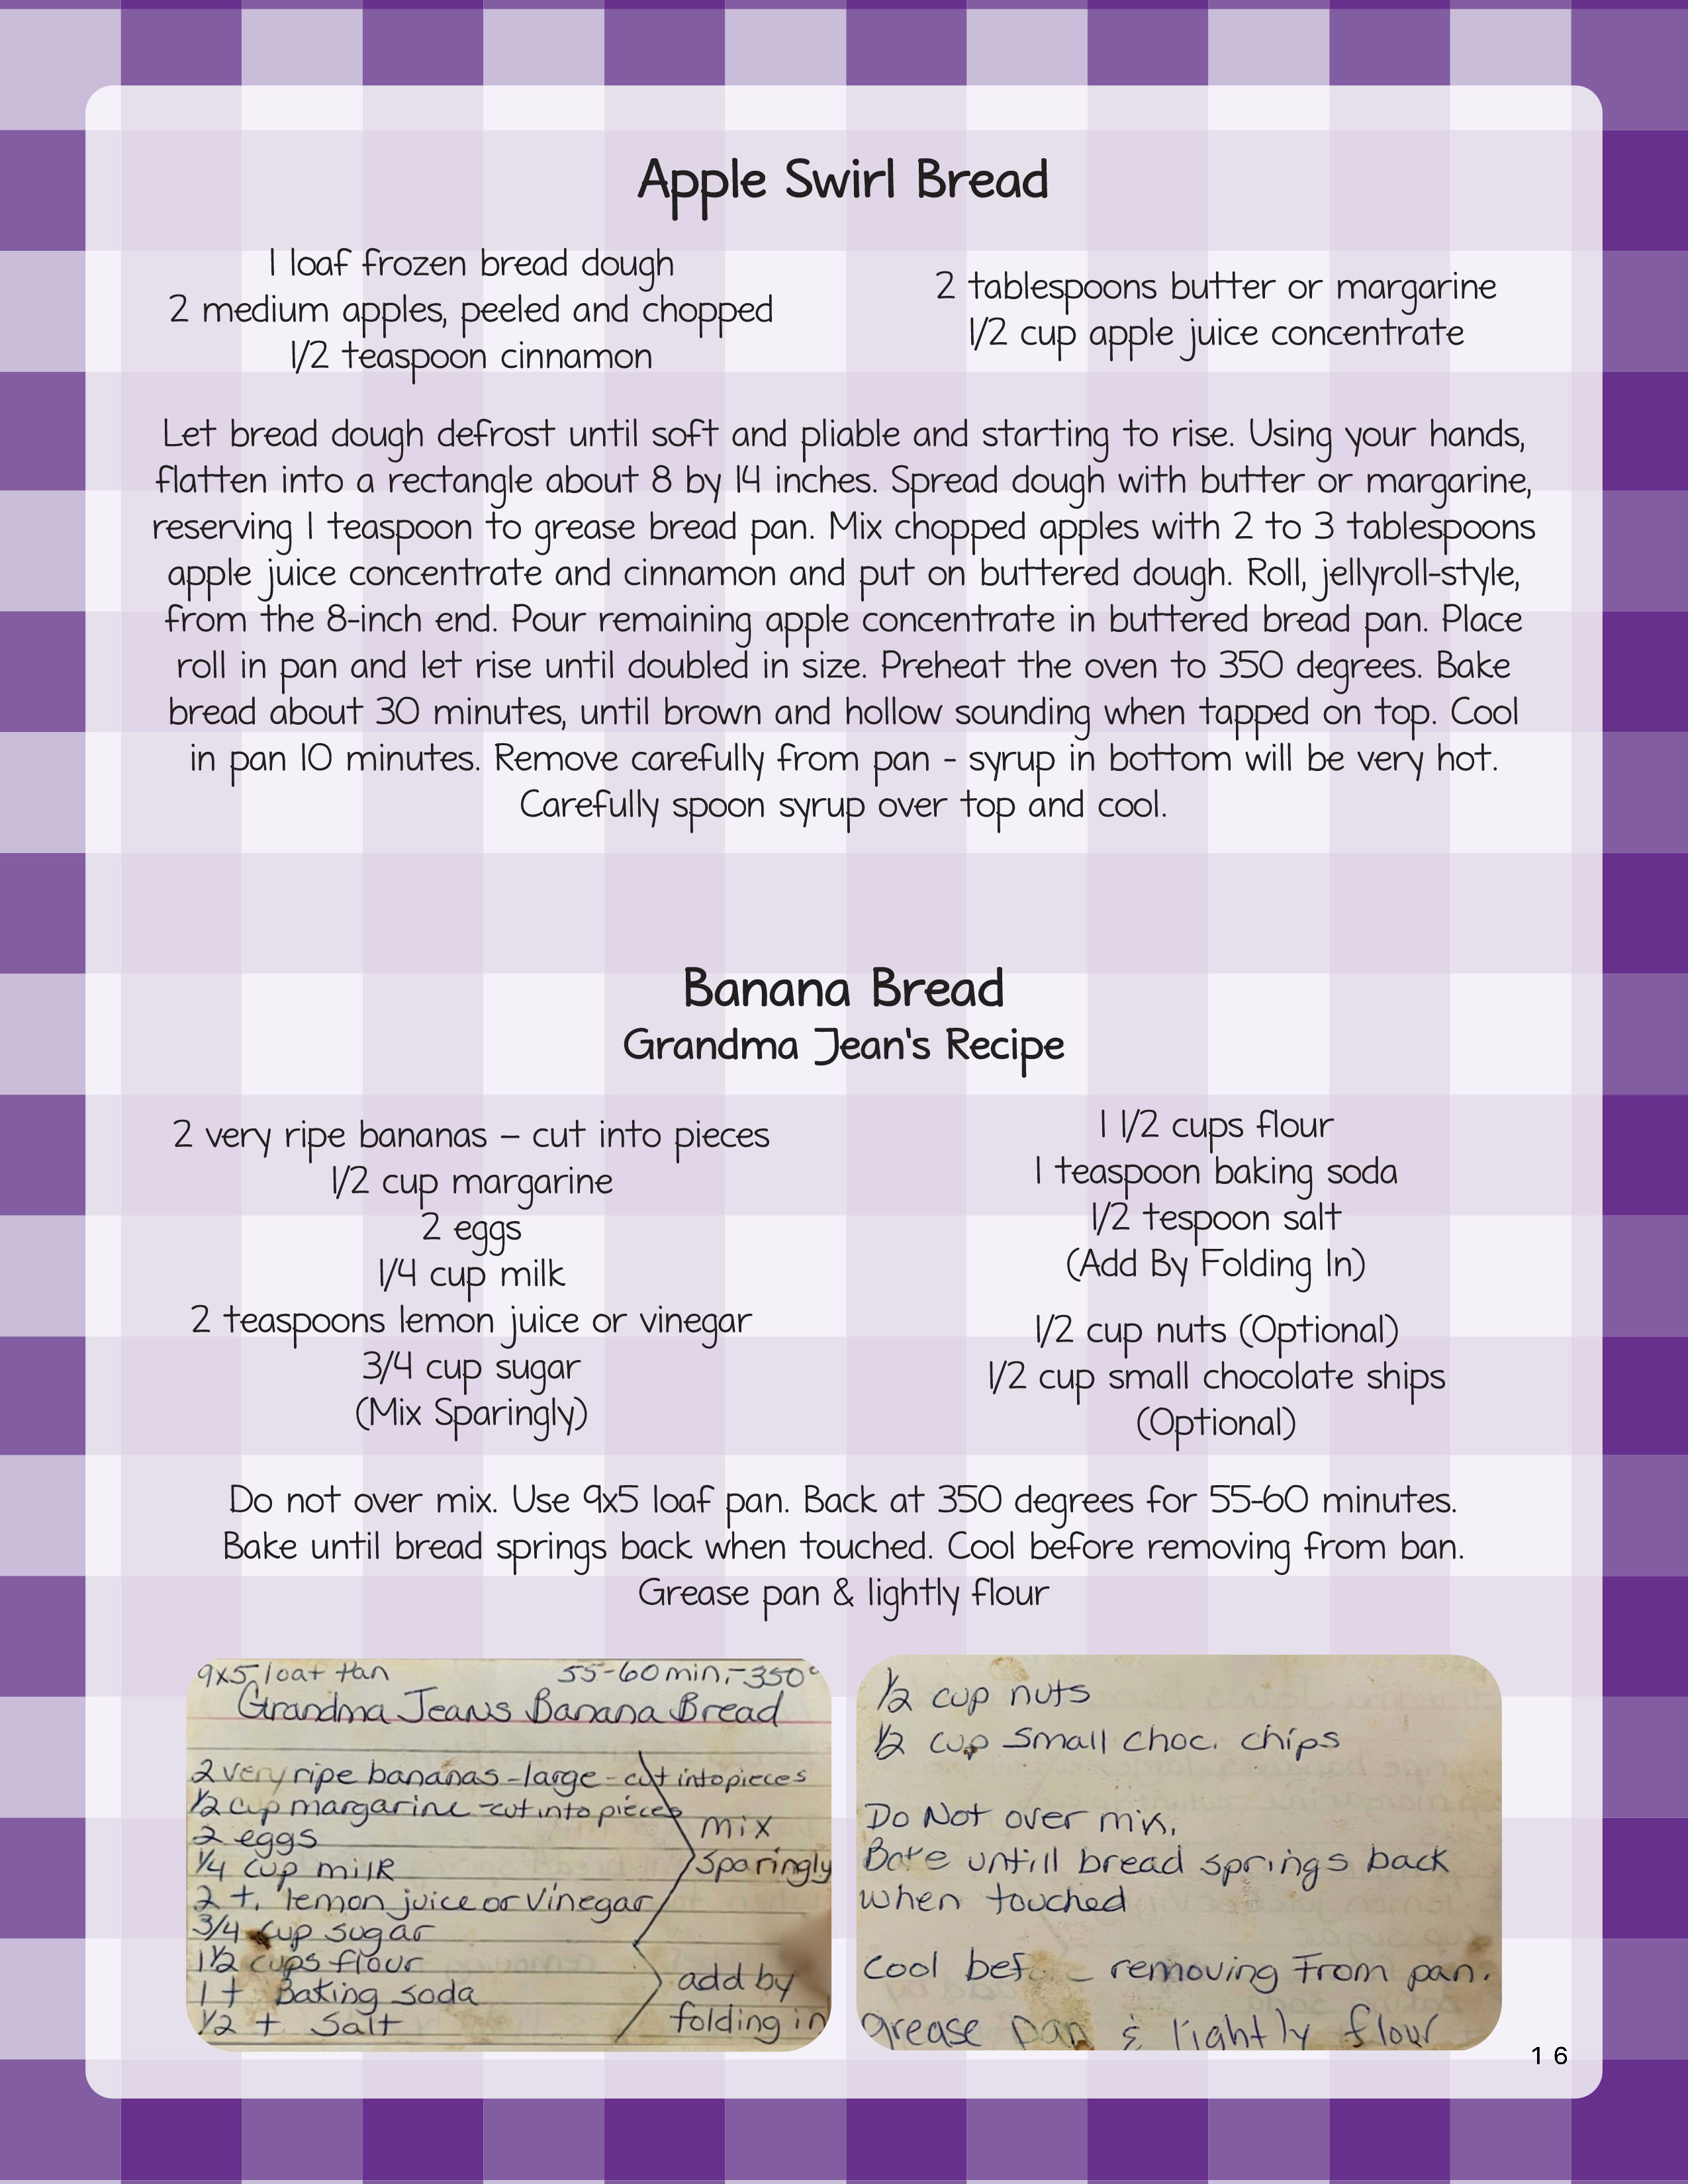 Apple Swirl Bread
1 loaf frozen bread dough
2 medium apples, peeled and chopped
1/2 teaspoon cinnamon
2 tablespoons butter or margarine
1/2 cup apple juice concentrate
Let bread dough defrost until soft and pliable and starting to rise. Using your hands,
flatten into a rectangle about 8 by 14 inches. Spread dough with butter or margarine,
reserving 1 teaspoon to grease bread pan. Mix chopped apples with 2 to 3 tablespoons
apple juice concentrate and cinnamon and put on buttered dough. Roll, jellyroll-style,
from the 8-inch end. Pour remaining apple concentrate in buttered bread pan. Place
roll in pan and let rise until doubled in size. Preheat the oven to 350 degrees. Bake
bread about 30 minutes, until brown and hollow sounding when tapped on top. Cool
in pan 10 minutes. Remove carefully from pan - syrup in bottom will be very hot.
Carefully spoon syrup over top and cool.
Banana Bread
Grandma Jean's Recipe
2 very ripe bananas – cut into pieces
1/2 cup margarine
2 eggs
1/4 cup milk
2 teaspoons lemon juice or vinegar
3/4 cup sugar
(Mix Sparingly)
1 1/2 cups flour
1 teaspoon baking soda
1/2 tespoon salt
(Add By Folding In)
1/2 cup nuts (Optional)
1/2 cup small chocolate ships
(Optional)
Do not over mix. Use 9x5 loaf pan. Back at 350 degrees for 55-60 minutes.
Bake until bread springs back when touched. Cool before removing from ban.
Grease pan & lightly flour
9x5 loaf Pan 55-60 min,-350°
Grandma Jeans Banana Bread
2 very ripe bananas-large-cut into pieces
1/2 cup margarine-cut into pieces
2 eggs
1/4 cup milk
2 t. lemon juice or Vinegar
3/4 cup sugar
mix
sparingly
1 1/2 cups flour
1 t Baking soda
1/2 t Salt
add by
folding in
1/2 cup nuts
1/2 cup small choc. chips
Do Not over mix,
Bake untill bread springs back
when touched
Cool bef removing From pan.
Grease pan & lightly flour
16